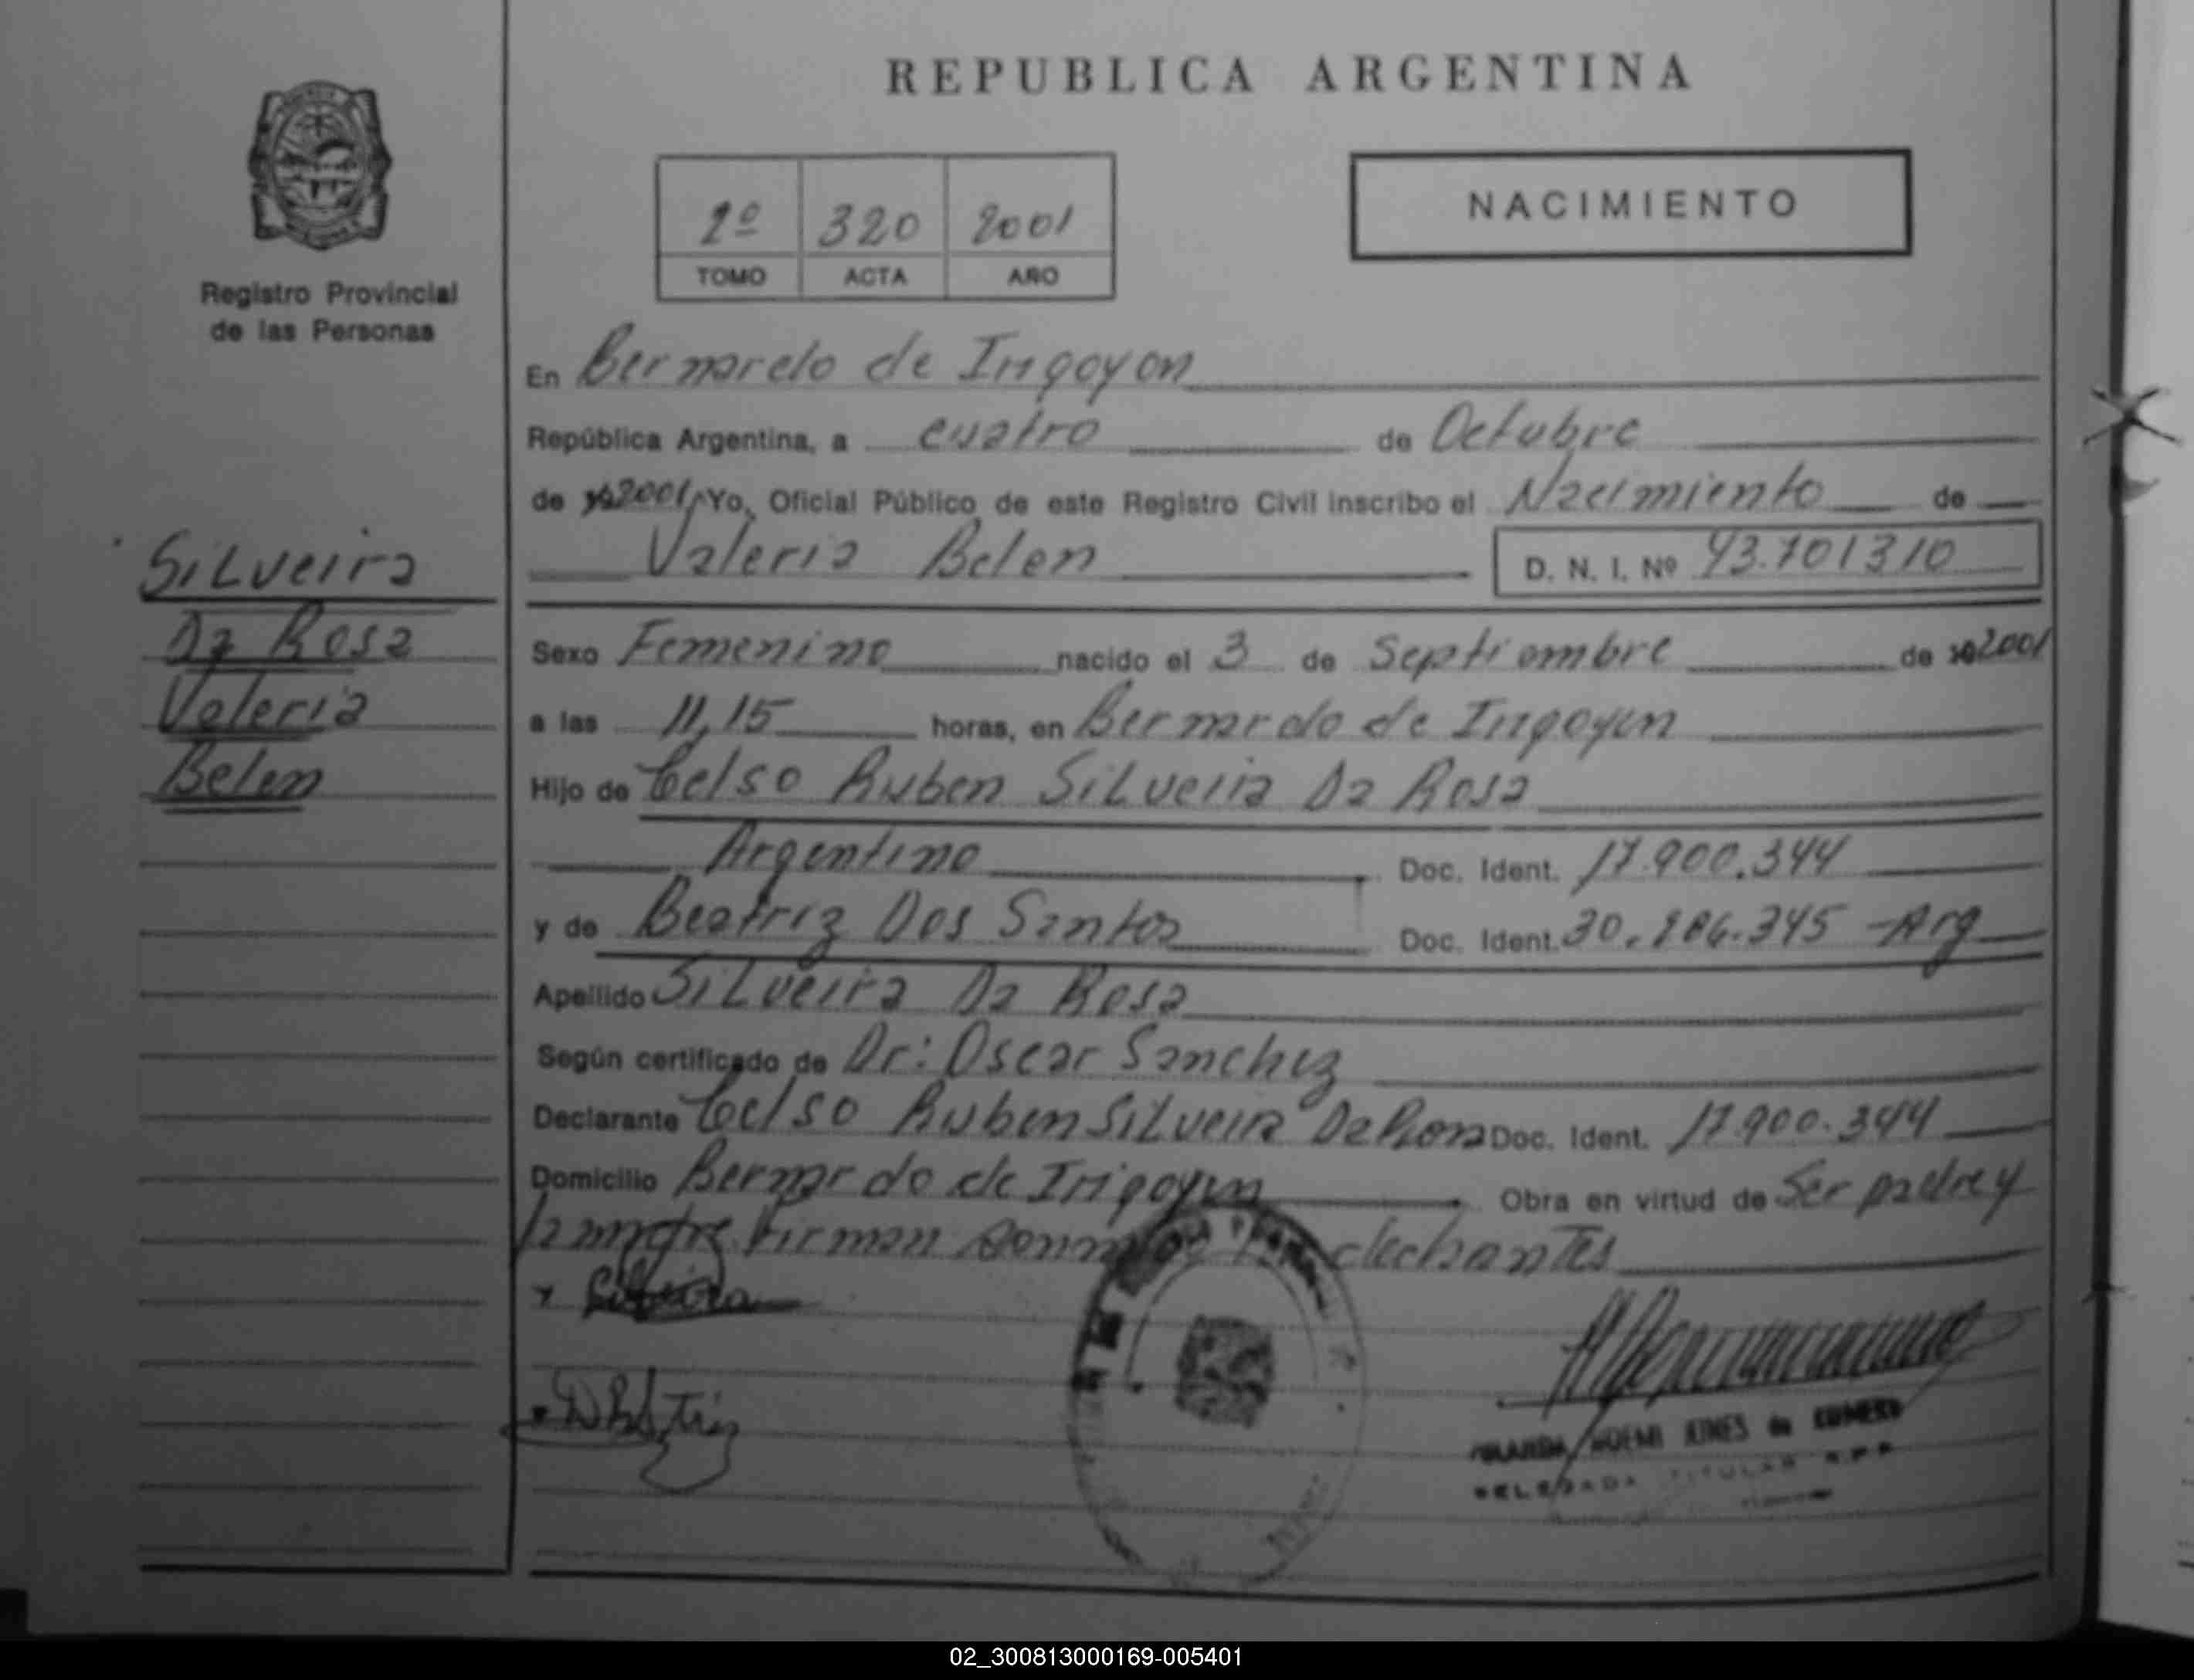 REPUBLICA ARGENTINA
Registro Provincial
de las Personas
2º 320 2001
TOMO ACTA AÑO
NACIMIENTO
En Bernardo de Irigoyen
República Argentina, a cuatro de Octubre
de 19 2001 Yo, Oficial Público de este Registro Civil inscribo el Nacimiento de
Valeria Belen D. N. I. Nº 43.701310
Silveira
Da Rosa
Valeria
Belen
Sexo Femenino nacido el 3 de Septiembre de 19 2001
a las 11,15 horas, en Bernardo de Irigoyen
Hijo de Celso Ruben Silveira Da Rosa
Argentino Doc. Ident. 17.900.344
y de Beatriz Dos Santos Doc. Ident. -Arg
Apellido Silveira Da Rosa
Según certificado de Dr: Oscar Sanchez
Declarante Celso Ruben Silveira Da Rosa Doc. Ident. 17.900.344
Domicilio Bernardo de Irigoyen Obra en virtud de Ser padre y
la madre Firman
Silveira
NOEMI
DELEGADA TITULAR
02_300813000169-005401